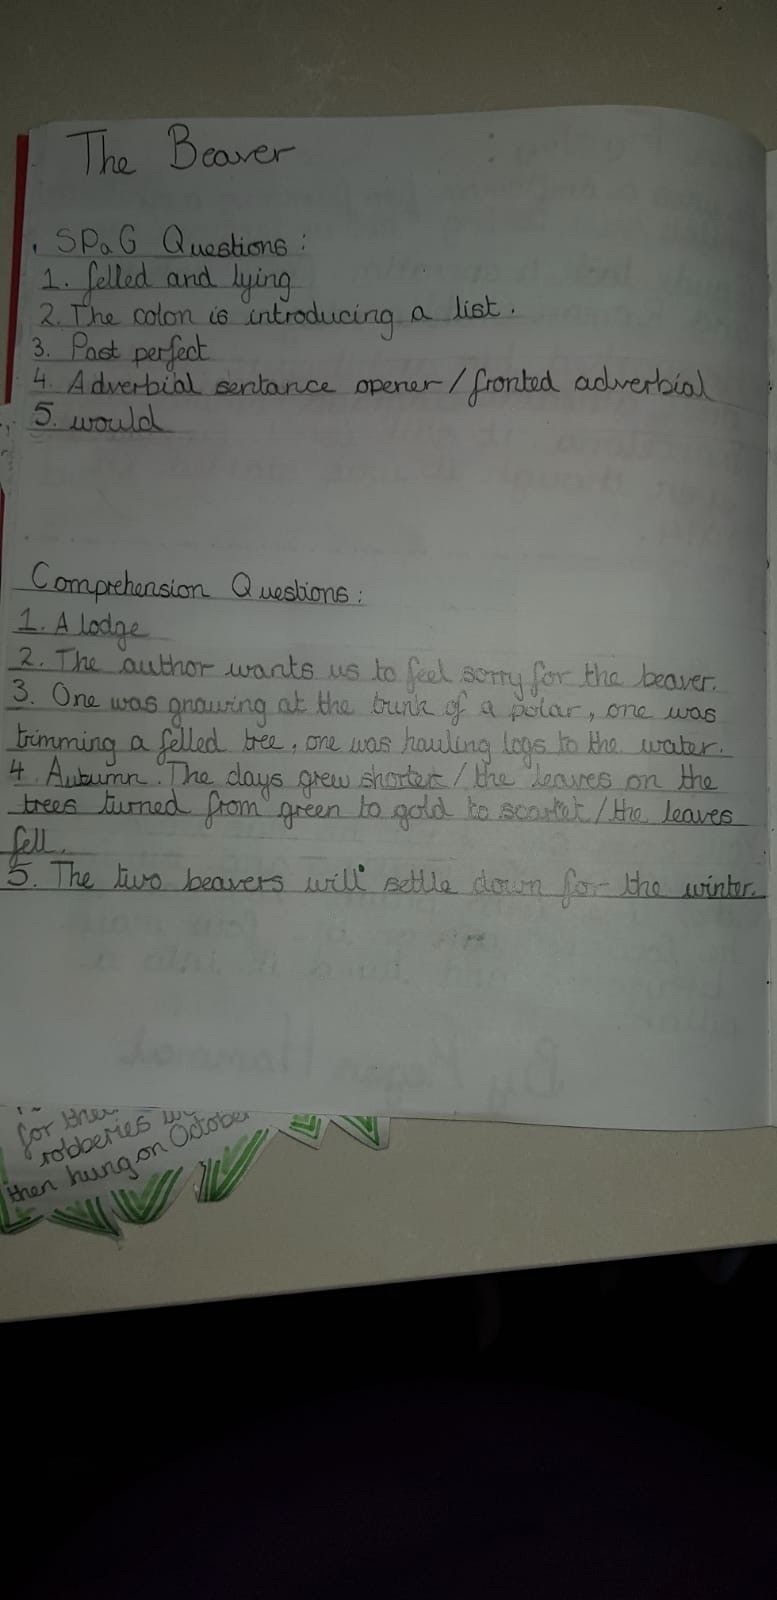 The Beaver
SPaG Questions:
1. felled and lying
2. The colon is introducing a list.
3. Past perfect
4. Adverbial sentance opener/fronted adverbial
5. would
Comprehension Questions:
1. A lodge
2. The author wants us to feel sorry for the beaver.
3. One was gnawing at the trunk of a polar, one was
trimming a felled tree, one was hauling logs to the water.
4. Autumn. The days grew shorter/the leaves on the
trees turned from green to gold to scarlet/the leaves
fell.
5. The two beavers will settle down for the winter.
for
robberies
then hung on October